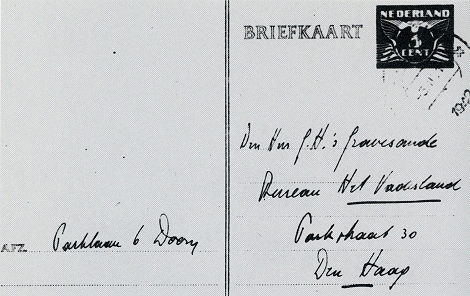 BRIEFKAART
NEDERLAND
CENT
1942
Den Heer G.H. 's Gravesande
Bureau Het Vaderland
Parkstraat 30
Den Haag
AFZ. Parklaan 6 Doorn